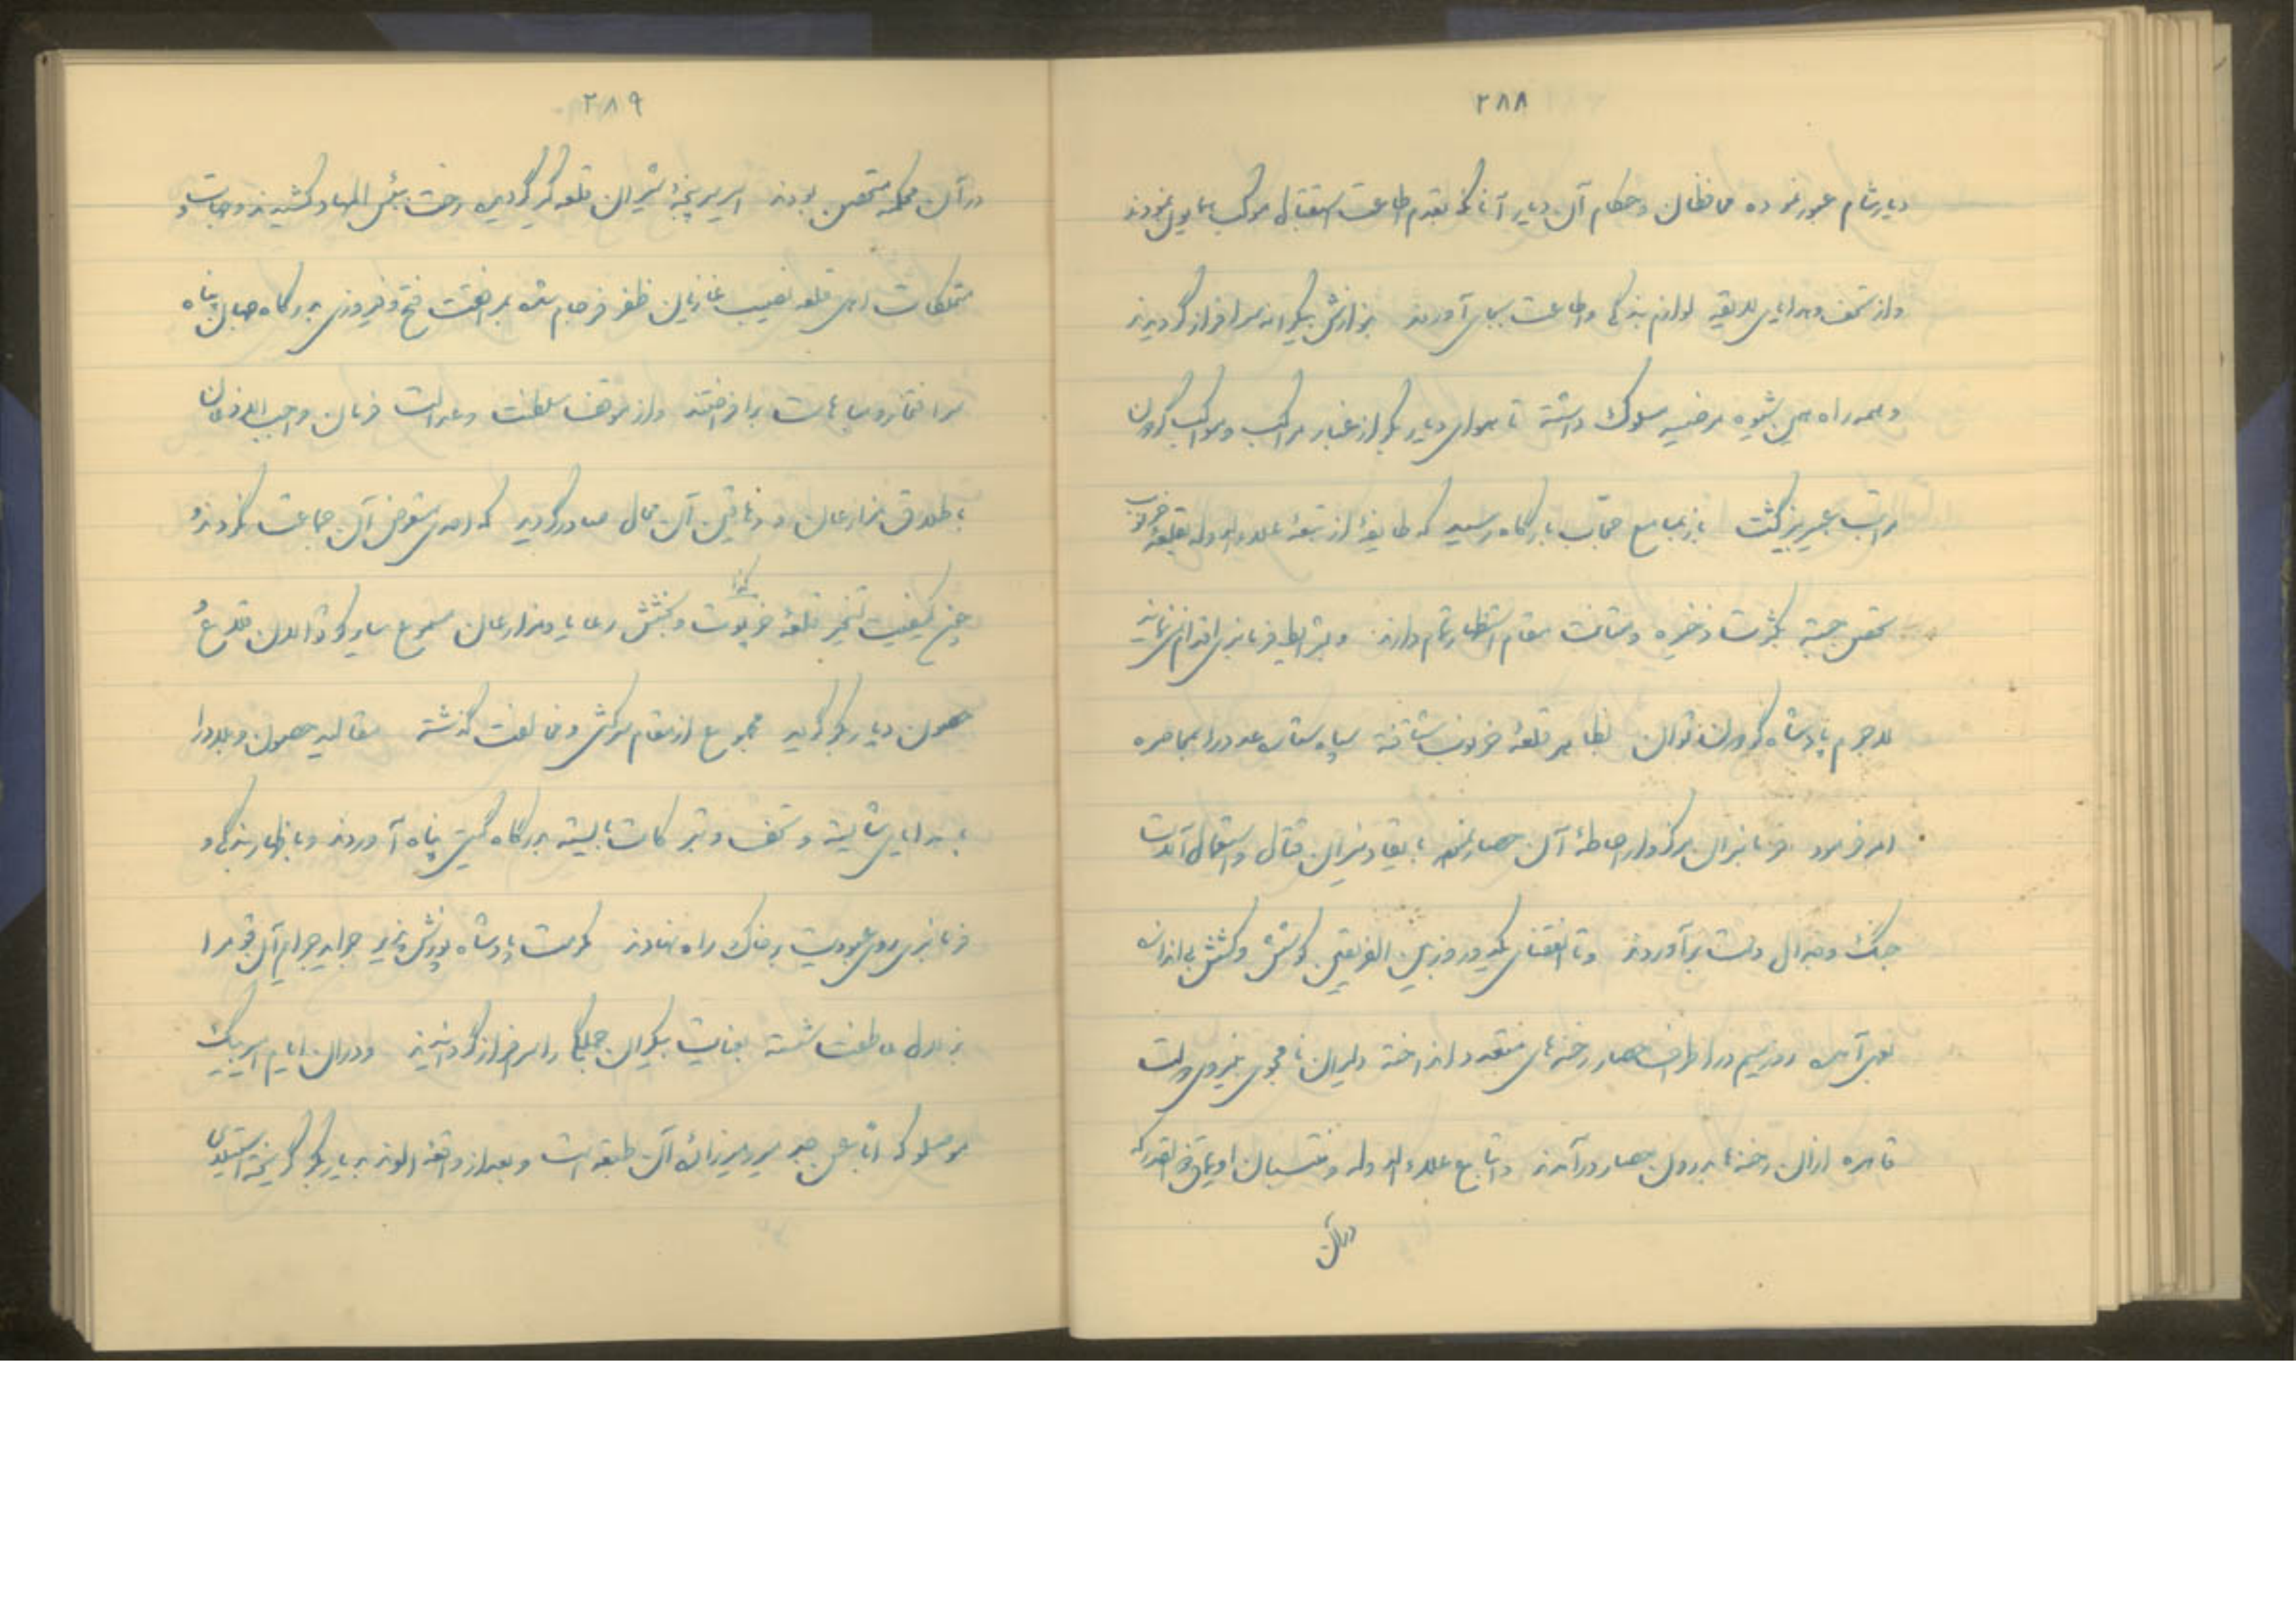 ۲۸۸
دیار شام عبور نموده محافظان و حکام آن دیار آنانکه بقدم اطاعت استقبال موکب همایون نمودند
و از تحف و هدایای لایقه لوازم بندگی و اطاعت بجای آوردند بنوازش بیکرانه سرافراز گردیدند
و همه راه همین شیوه مرضیه سلوک داشته تا هوای دیار بکر از غبار مراکب و مواکب گردون
مراتب عبیربیز گشت باز بمسامع حجاب بارگاه رسید که طایفهٔ از تبعهٔ علاءالدوله بقلعهٔ خرتوت
تحصن جسته بکثرت ذخیره و متانت مقام استظهار تمام دارند و بشرایط فرمانبری اقدام نمی‌نمایند
لاجرم پادشاه گردون توان بظاهر قلعهٔ خرتوت شتافته سپاه ستاره عدد را بمحاصره
امر فرمود فرمانبران مرکزوار احاطهٔ آن حصار نموده بایقاد نیران قتال و استعمال آلات
جنگ و جدال دست برآوردند و تا انقضای یکدو روز بین الفریقین کوشش و کشش بی اندازه
بعمل آمده روز سیم در اطراف حصار رخنه‌های متعدد انداخته دلیران نامجوی بنیروی دولت
قاهره ازان رخنها بدرون حصار درآمدند و اتباع علاءالدوله و منتسبان اویماق ذوالقدر که
درآن
۲۸۹
درآن محکمه متحصن بودند اسیر پنجهٔ شیران قلعه گیر گردیده رخت ببئس المهاد کشیدند و جهات و
متملکات اهل قلعه نصیب غازیان ظفر فرجام شده بمرافقت فتح و فیروزی بدرگاه جهان پناه
سر افتخار و مباهات برافراختند و از موقف سلطنت و عدالت فرمان واجب الاذعان
باطلاق مزارعان و دهاقین آن محال صادر گردید که احدی متعرض آن جماعت نگردند و
چون کیفیت تسخیر قلعهٔ خرتوت و بخشش رعایا و مزارعان مسموع سایر کوتوالان قلاع و
کذا
حصون دیار بکر گردید مجموع از مقام سرکشی و مخالفت گذشته مقالید حصون و بلاد را
با هدایای شایسته و تحف و تبرکات بایسته بدرگاه گیتی پناه آوردند و باظهار بندگی و
فرمانبری روی عبودیت بر خاک راه نهادند مرحمت پادشاه پوزش پذیر جراید جرایم آن قوم را
بزلال عاطفت شسته بعنایت بیکران جملگی را سرافراز گردانیدند و دران ایام امیر بیک
موصلو که اباً عن جد میر و میرزادهٔ آن طبقه است و بعد از واقعهٔ الوند بدیار بکر گریخته استیلای